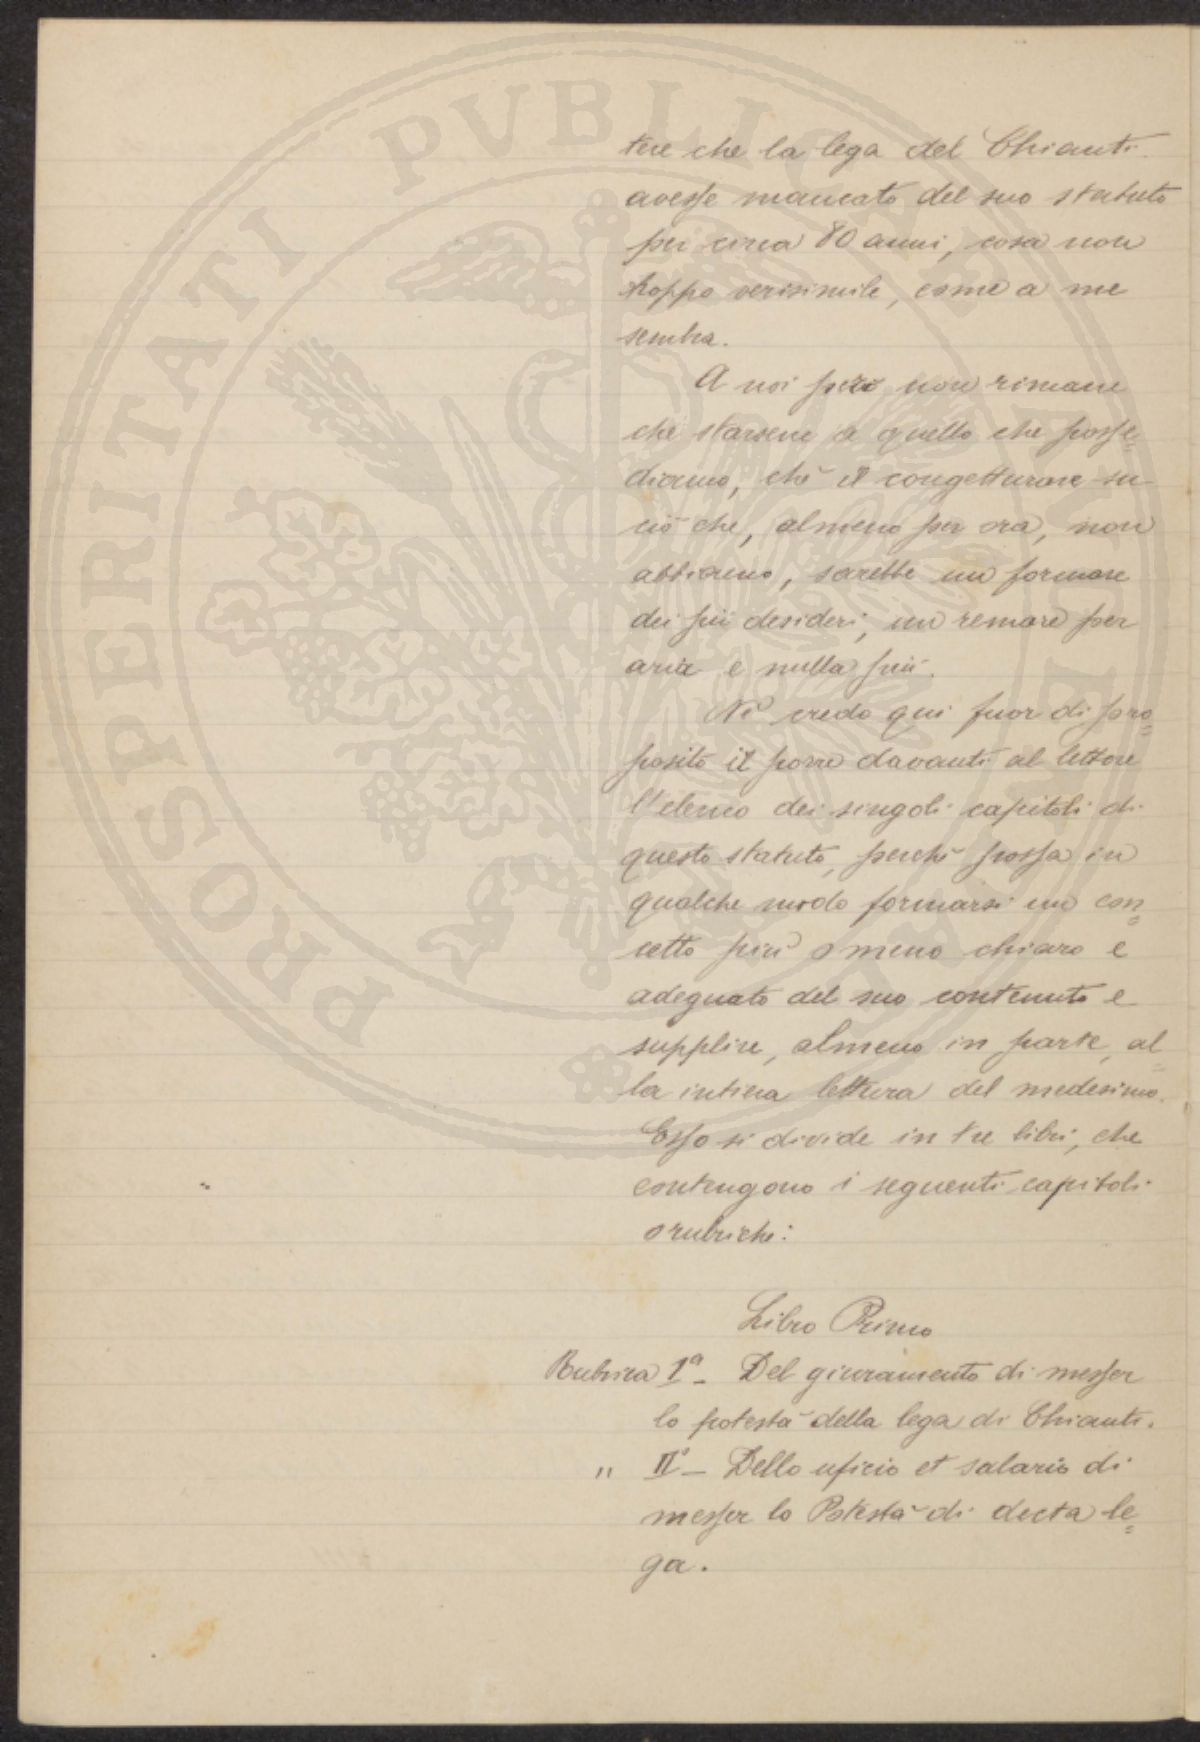 tere che la lega del Chianti
avesse mancato del suo statuto
per circa 80 anni, cosa non
troppo verisimile, come a me
sembra.
A noi però non rimane
che starsene a quello che posse=
diamo, chè il congetturare su
ciò che, almeno per ora, non
abbiamo, sarebbe un formare
dei pii desideri, un remare per
aria e nulla più.
Nè credo qui fuor di pro=
posito il porre davanti al lettore
l'elenco dei singoli capitoli di
questo statuto, perchè possa in
qualche modo formarsi un con=
cetto più o meno chiaro e
adeguato del suo contenuto e
supplire, almeno in parte, al=
la intiera lettura del medesimo.
Esso si divide in tre libri, che
contengono i seguenti capitoli
o rubriche:
Libro Primo
Rubrica Iª - Del giuramento di messer
lo potestà della lega di Chianti.
" IIª - Dello uficio et salario di
messer lo Potestà di decta le=
ga.
PROSPERITATI PVBLICAE AVGENDAE